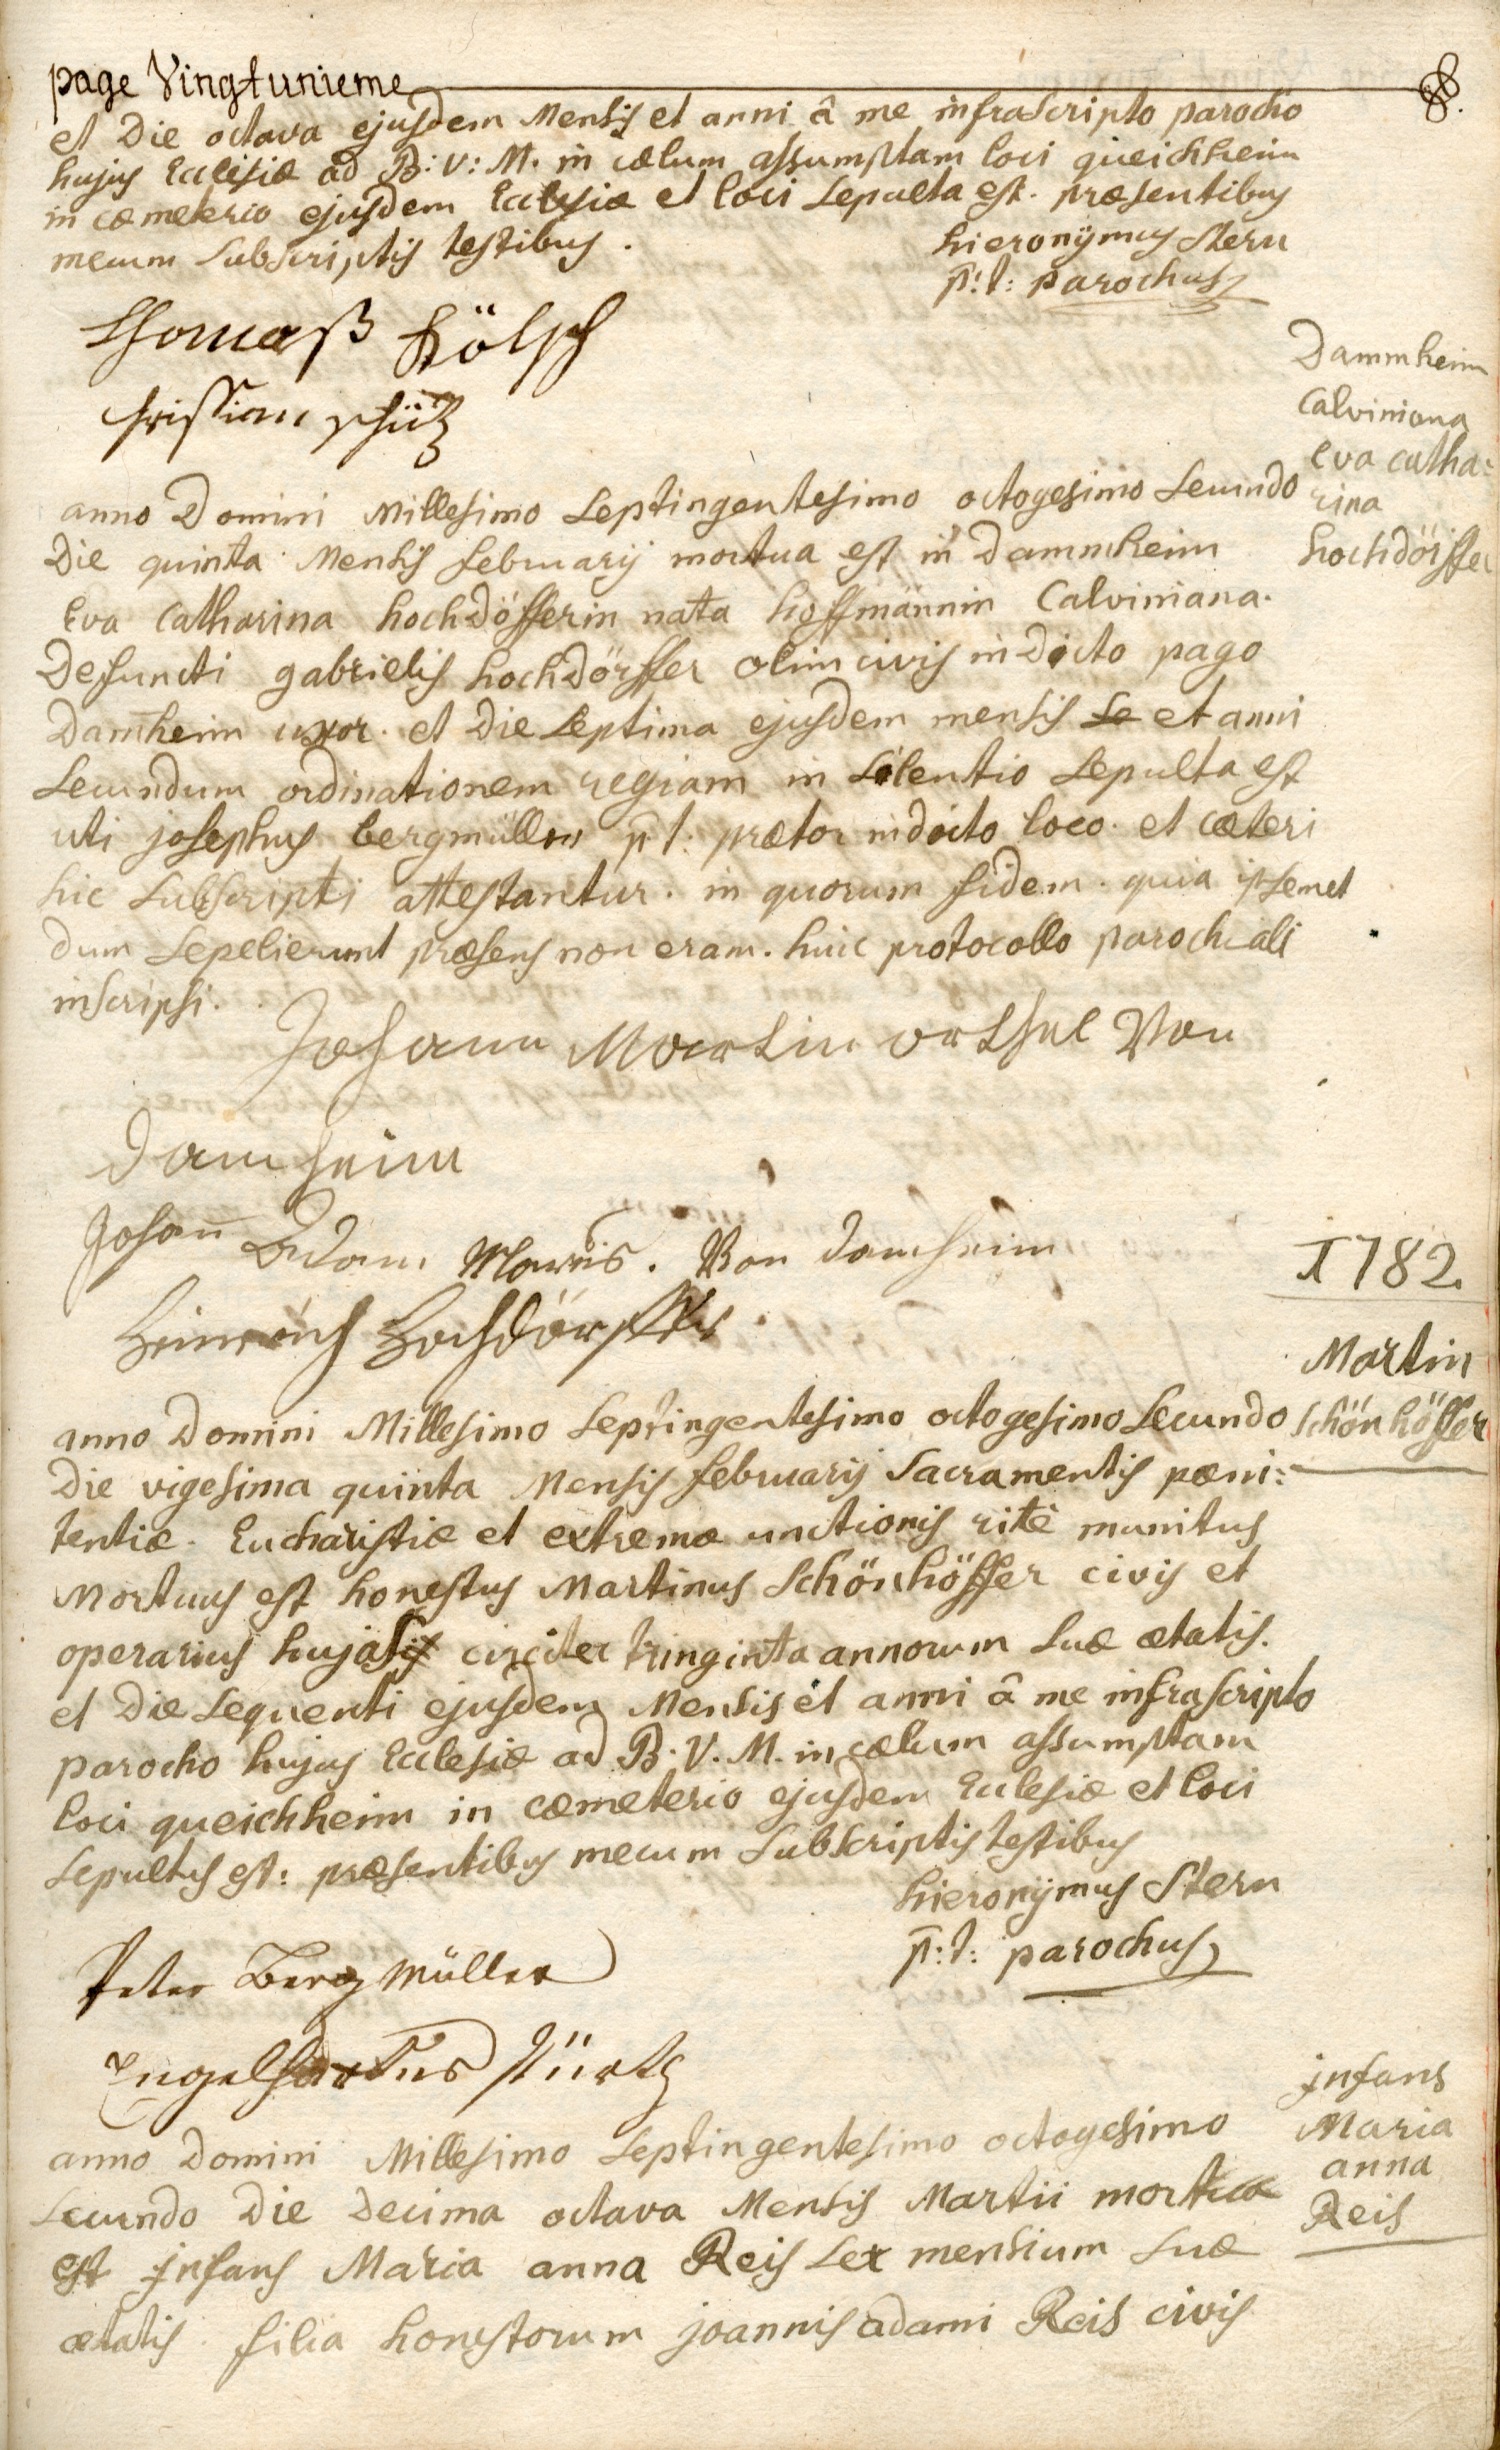 page Vingtunieme
et Die octava ejusdem Mensis et anni â me infrascripto parocho
hujus Ecclesiæ ad B: V: M. in cælum assumptam loci queichheim
in cæmeterio ejusdem Ecclesiæ et loci sepulta est. præsentibus
mecum subscriptis testibus.
hieronÿmus Stern
p: t: parochus
Thomaß Hölsch
Christian Schütz
Dammheim
Calviniana
Eva catha:
rina
hochdörffer
anno Domini Millesimo septingentesimo octogesimo secundo
Die quinta Mensis februarij mortua est in Dammheim
Eva Catharina hochdöfferin nata hoffmännin Calviniana.
Defuncti gabrielis hochdörffer olim civis in dicto pago
Dam̄heim uxor. et Die septima ejusdem mensis se et anni
secundum ordinationem regiam in silentio sepulta est
uti josephus bergmüller p̄ t: prætor in dicto loco. et cæteri
hic subscripti attestantur. in quorum fidem. quia ipsemet
dum sepelierunt præsens non eram. huic protocollo parochiali
inscripsi.
Johann Martin orthel Von
Damheim
Johan̄ Adam Marxis. Von Damheim
Heinrich Hochdörffer
1782.
Martin
Schönhöffer
anno Domini Millesimo septingentesimo octogesimo secundo
Die vigesima quinta Mensis februarij Sacramentis pæni:
tentiæ. Eucharistiæ et extremæ unctionis ritè munitus
Mortuus est honestus Martinus Schönhöffer civis et
operarius hujatis circiter tringinta annorum suæ ætatis.
et Die sequenti ejusdem Mensis et anni â me infrascripto
parocho hujus Ecclesiæ ad B. V. M. in cælum assumptam
loci queichheim in cæmeterio ejusdem Ecclesiæ et loci
sepultus est: præsentibus mecum subscriptis testibus
hieronÿmus Stern
p̄: t: parochus
Peter Berg Müller
Engelhartus Stürtz
jnfans
Maria
anna
Reis
anno Domini Millesimo septingentesimo octogesimo
secundo Die Decima octava Mensis Martii mortua
est jnfans Maria anna Reis sex mensium suæ
ætatis. filia honestorum joannis adami Reis civis